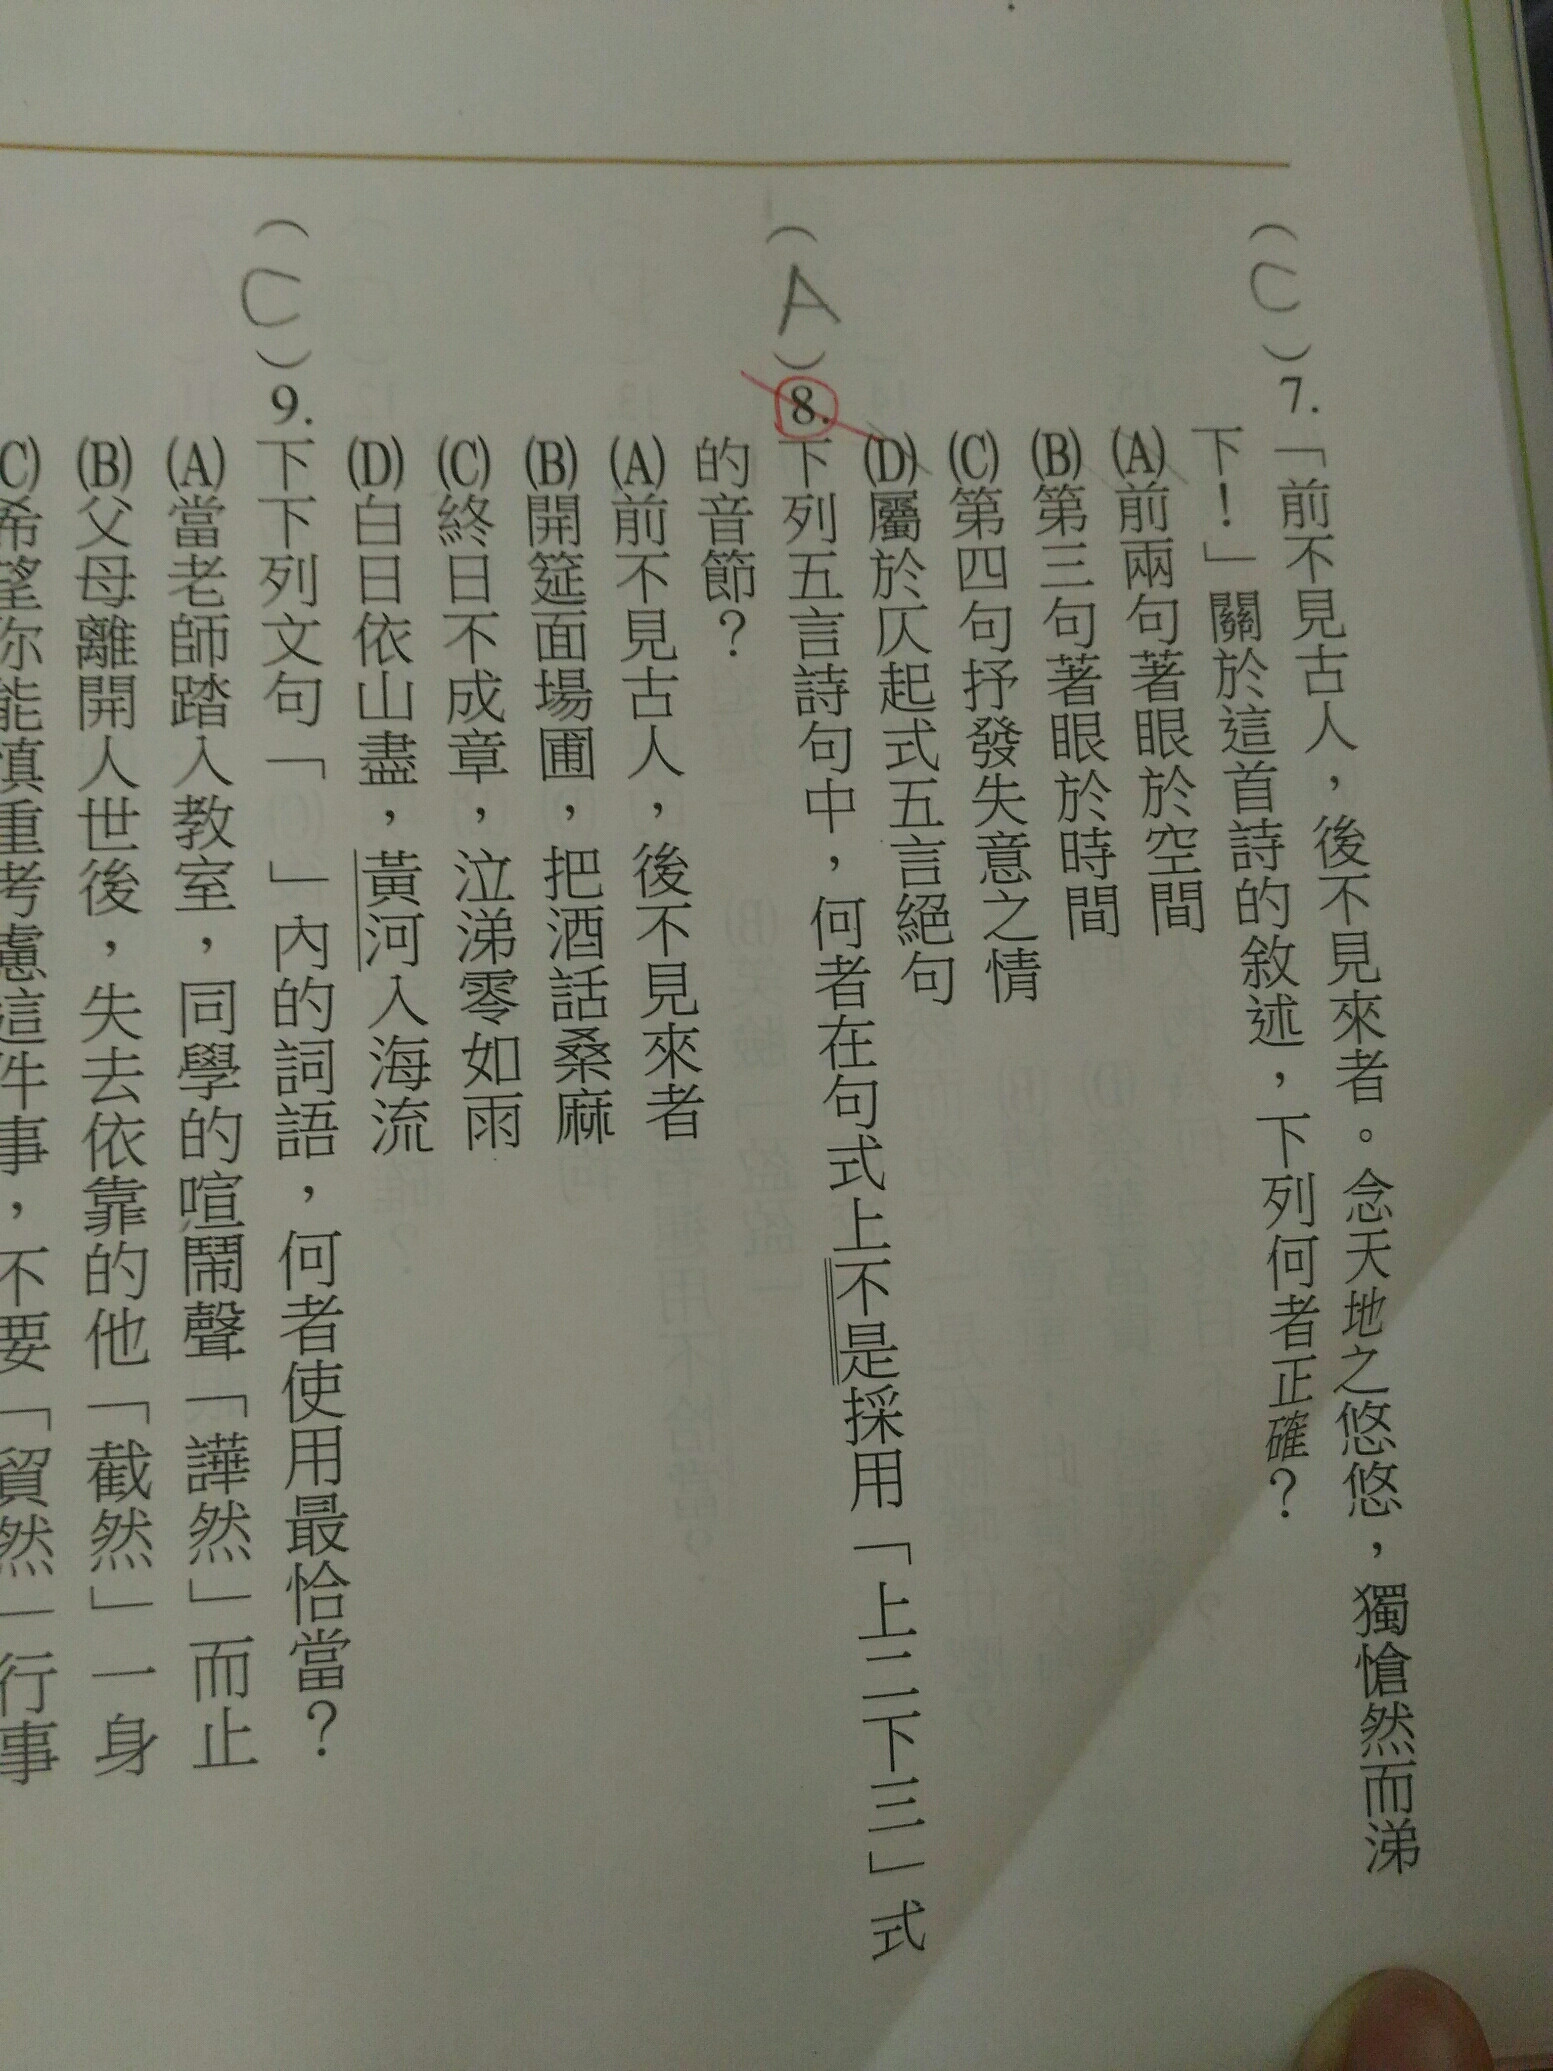 (C)7.「前不見古人，後不見來者。念天地之悠悠，獨愴然而涕
下！」關於這首詩的敘述，下列何者正確？
(A)前兩句著眼於空間
(B)第三句著眼於時間
(C)第四句抒發失意之情
(D)屬於仄起式五言絕句
(A)8.下列五言詩句中，何者在句式上不是採用「上二下三」式
的音節？
(A)前不見古人，後不見來者
(B)開筵面場圃，把酒話桑麻
(C)終日不成章，泣涕零如雨
(D)白日依山盡，黃河入海流
(C)9.下下列文句「　」內的詞語，何者使用最恰當？
(A)當老師踏入教室，同學的喧鬧聲「譁然」而止
(B)父母離開人世後，失去依靠的他「截然」一身
(C)希望你能慎重考慮這件事，不要「貿然」行事